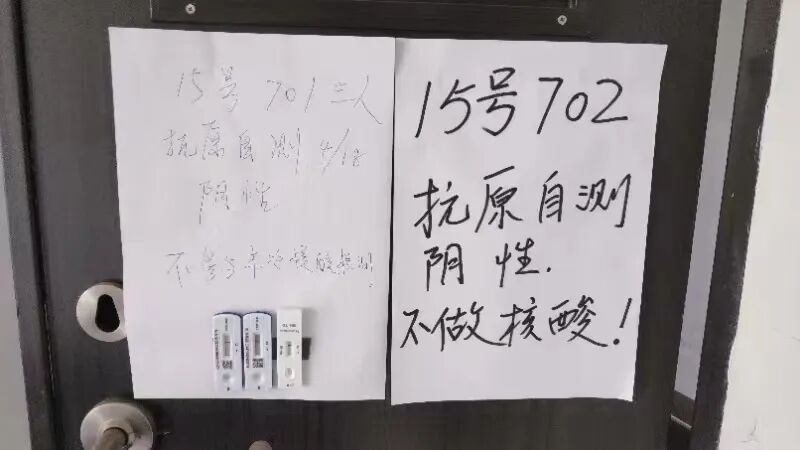 15号 701 三人
抗原自测 4/18
阴性
不参与本次核酸检测!
15号 702
抗原自测
阴性.
不做核酸!